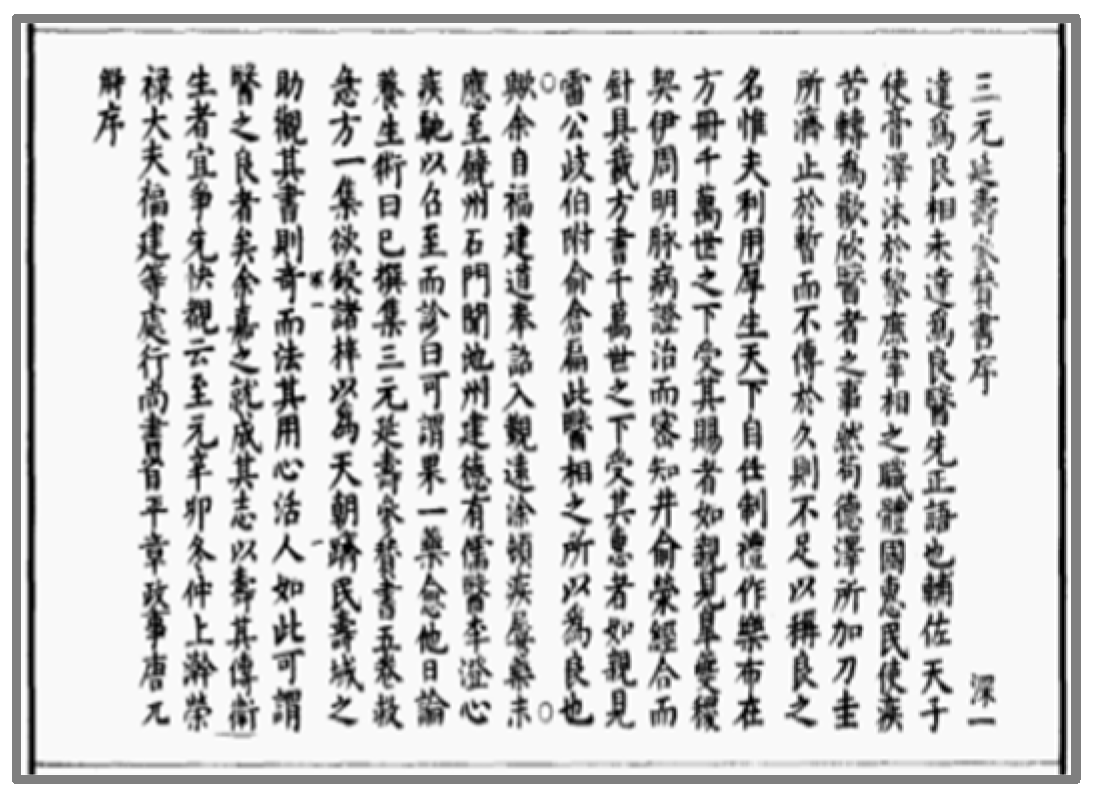 三元延壽參贊書序　深一
達爲良相未達爲良醫先正語也輔佐天子
使膏澤沐於黎庶宰相之職體國惠民使疾
苦轉爲歡欣醫者之事然苟德澤所加刀圭
所濟止於暫而不傳於久則不足以稱良之
名惟夫利用厚生天下自任制禮作樂布在
方冊千萬世之下受其賜者如親見皋夔稷
契伊周明脉病證治而審知井俞榮經合而
針具載方書千萬世之下受其惠者如親見
雷公歧伯附俞倉扁此醫相之所以爲良也
歟余自福建道奉詔入觀遠涂頓疾屢藥未
應至饒州石門聞池州建德有儒醫李澄心
疾馳以召至而診曰可謂果一藥愈他日論
養生術曰已撰集三元延壽參贊書五卷救
急方一集欲鋟諸梓以爲天朝躋民壽域之
助觀其書則奇而法其用心活人如此可謂
醫之良者矣余嘉之就成其志以壽其傳衛
生者宜爭先快覩云至元辛卯冬仲上澣榮
禄大夫福建等處行尚書省平章政事唐兀
觧序